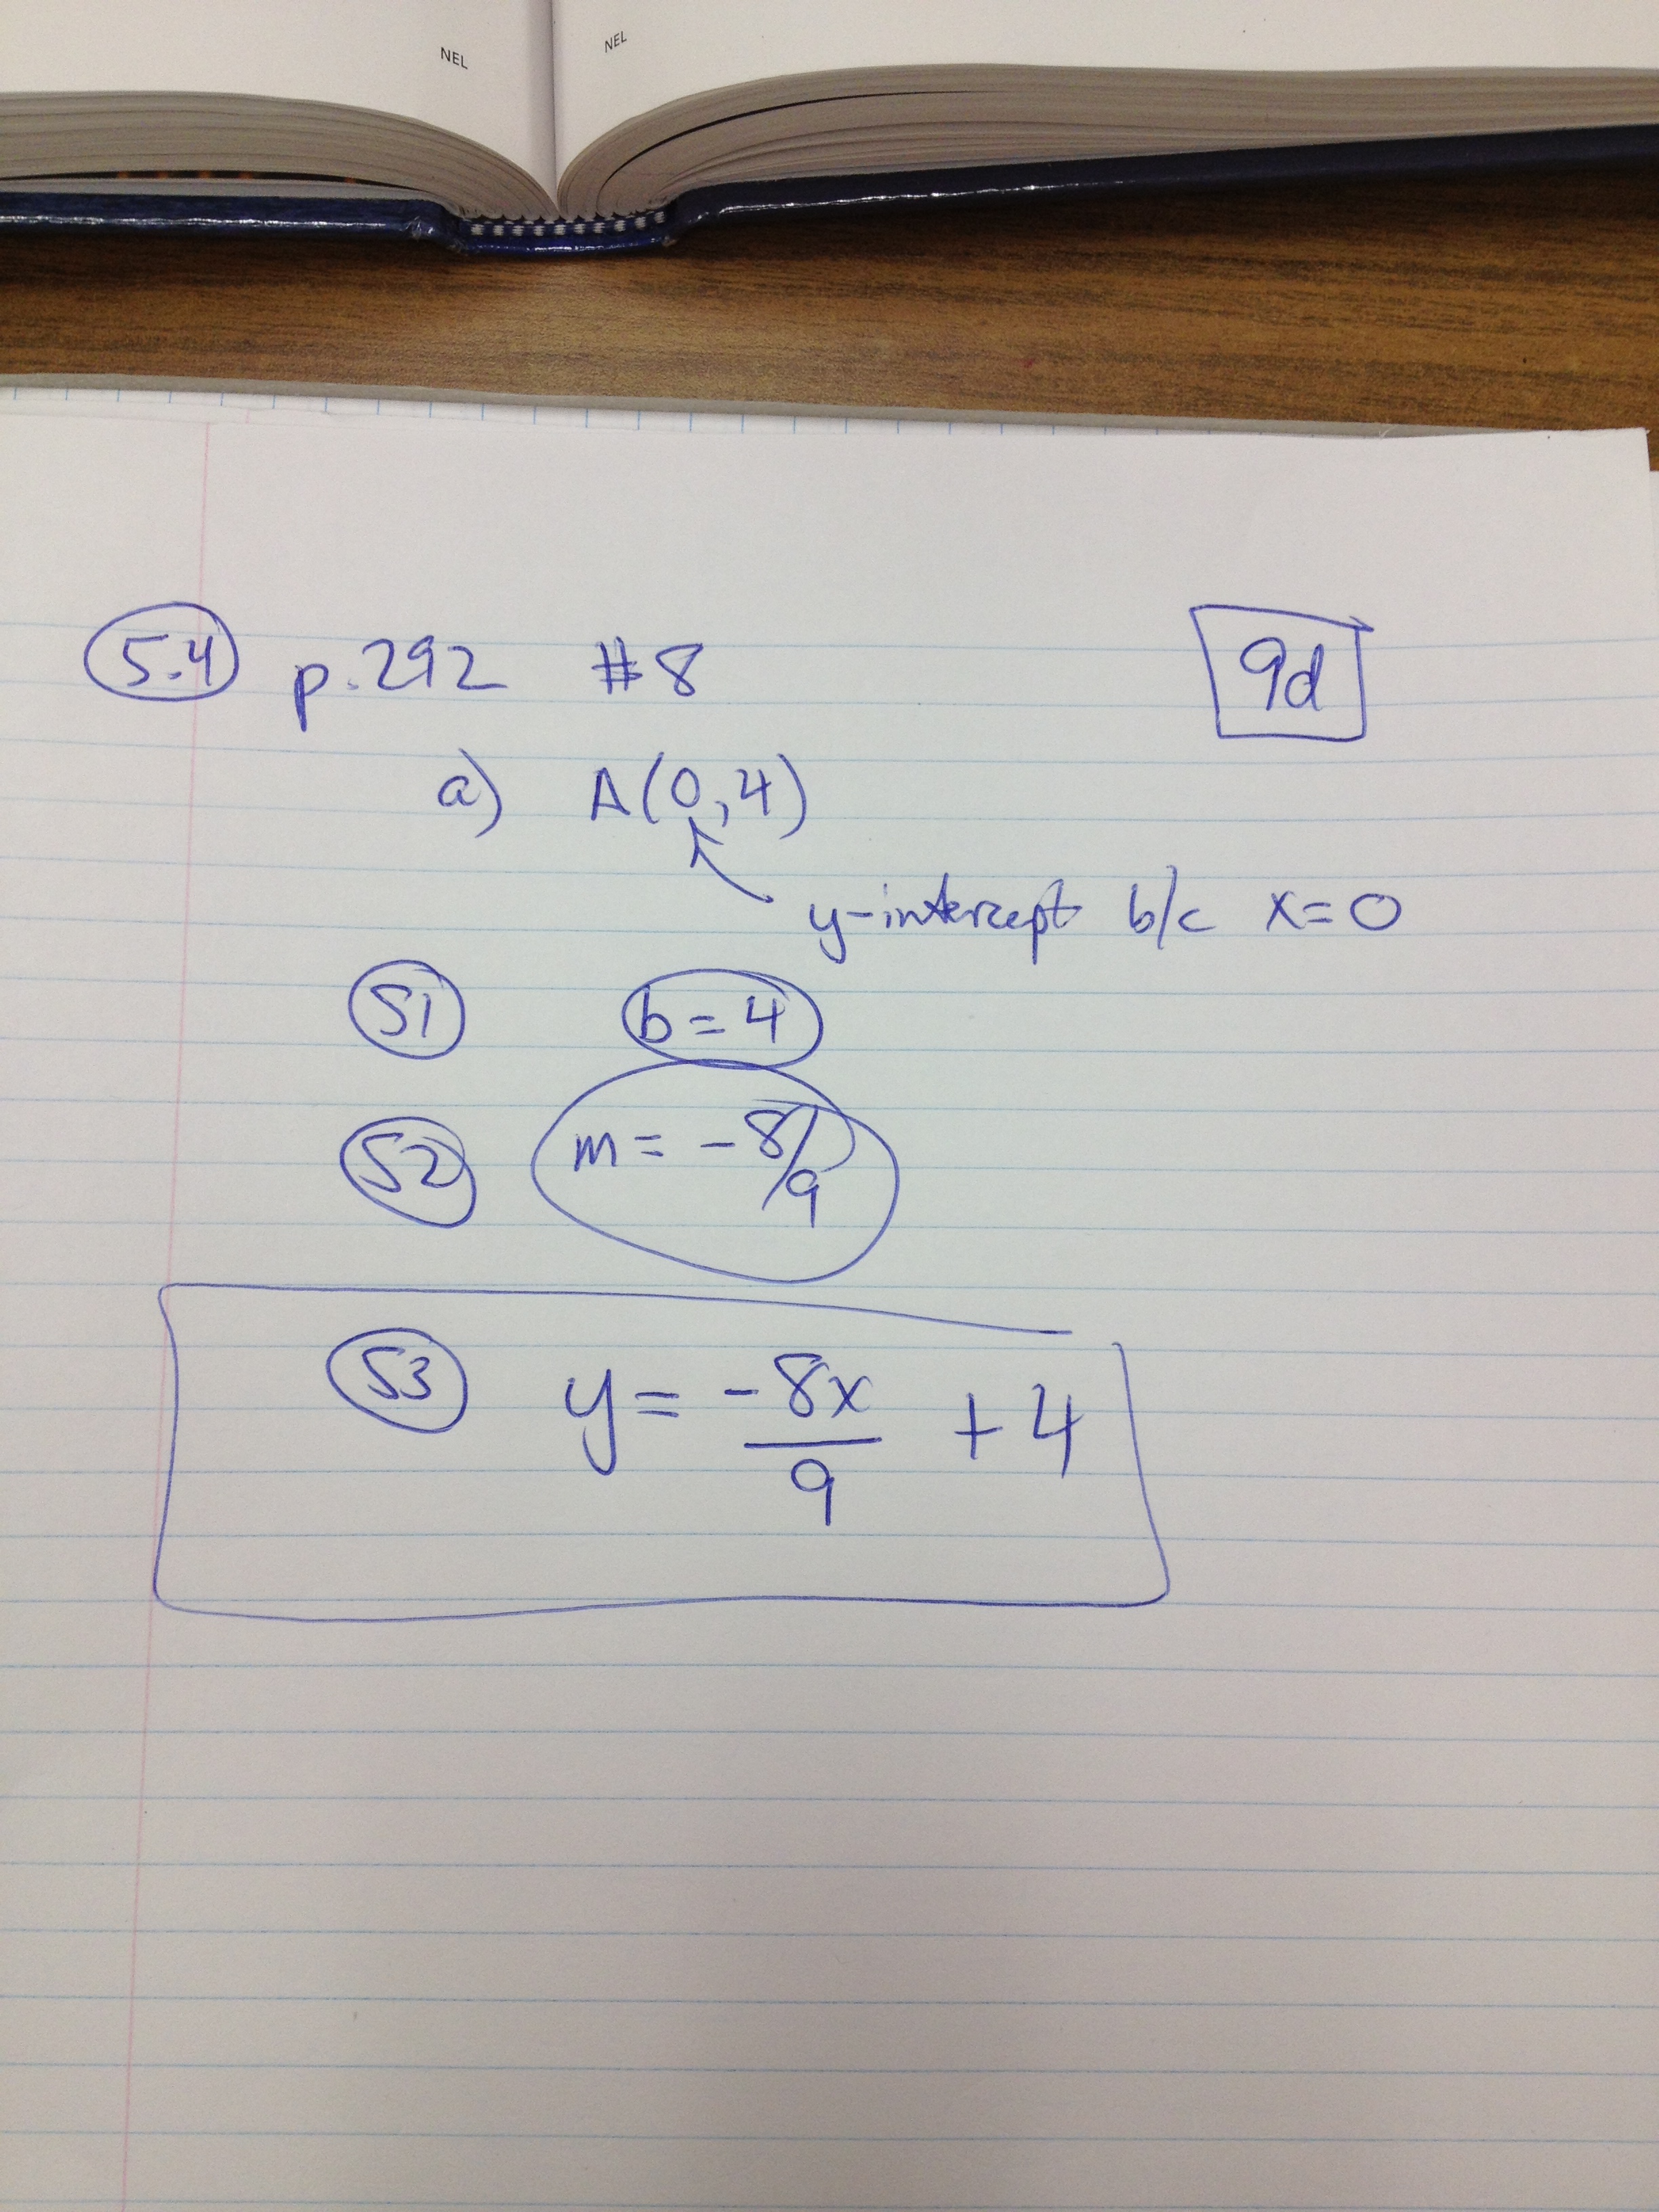 NEL NEL
5.4 p.292 #8 9d
a) A(0,4)
y-intercept b/c x=0
S1 b=4
S2 m= -8/9
S3 y= -8x/9 +4